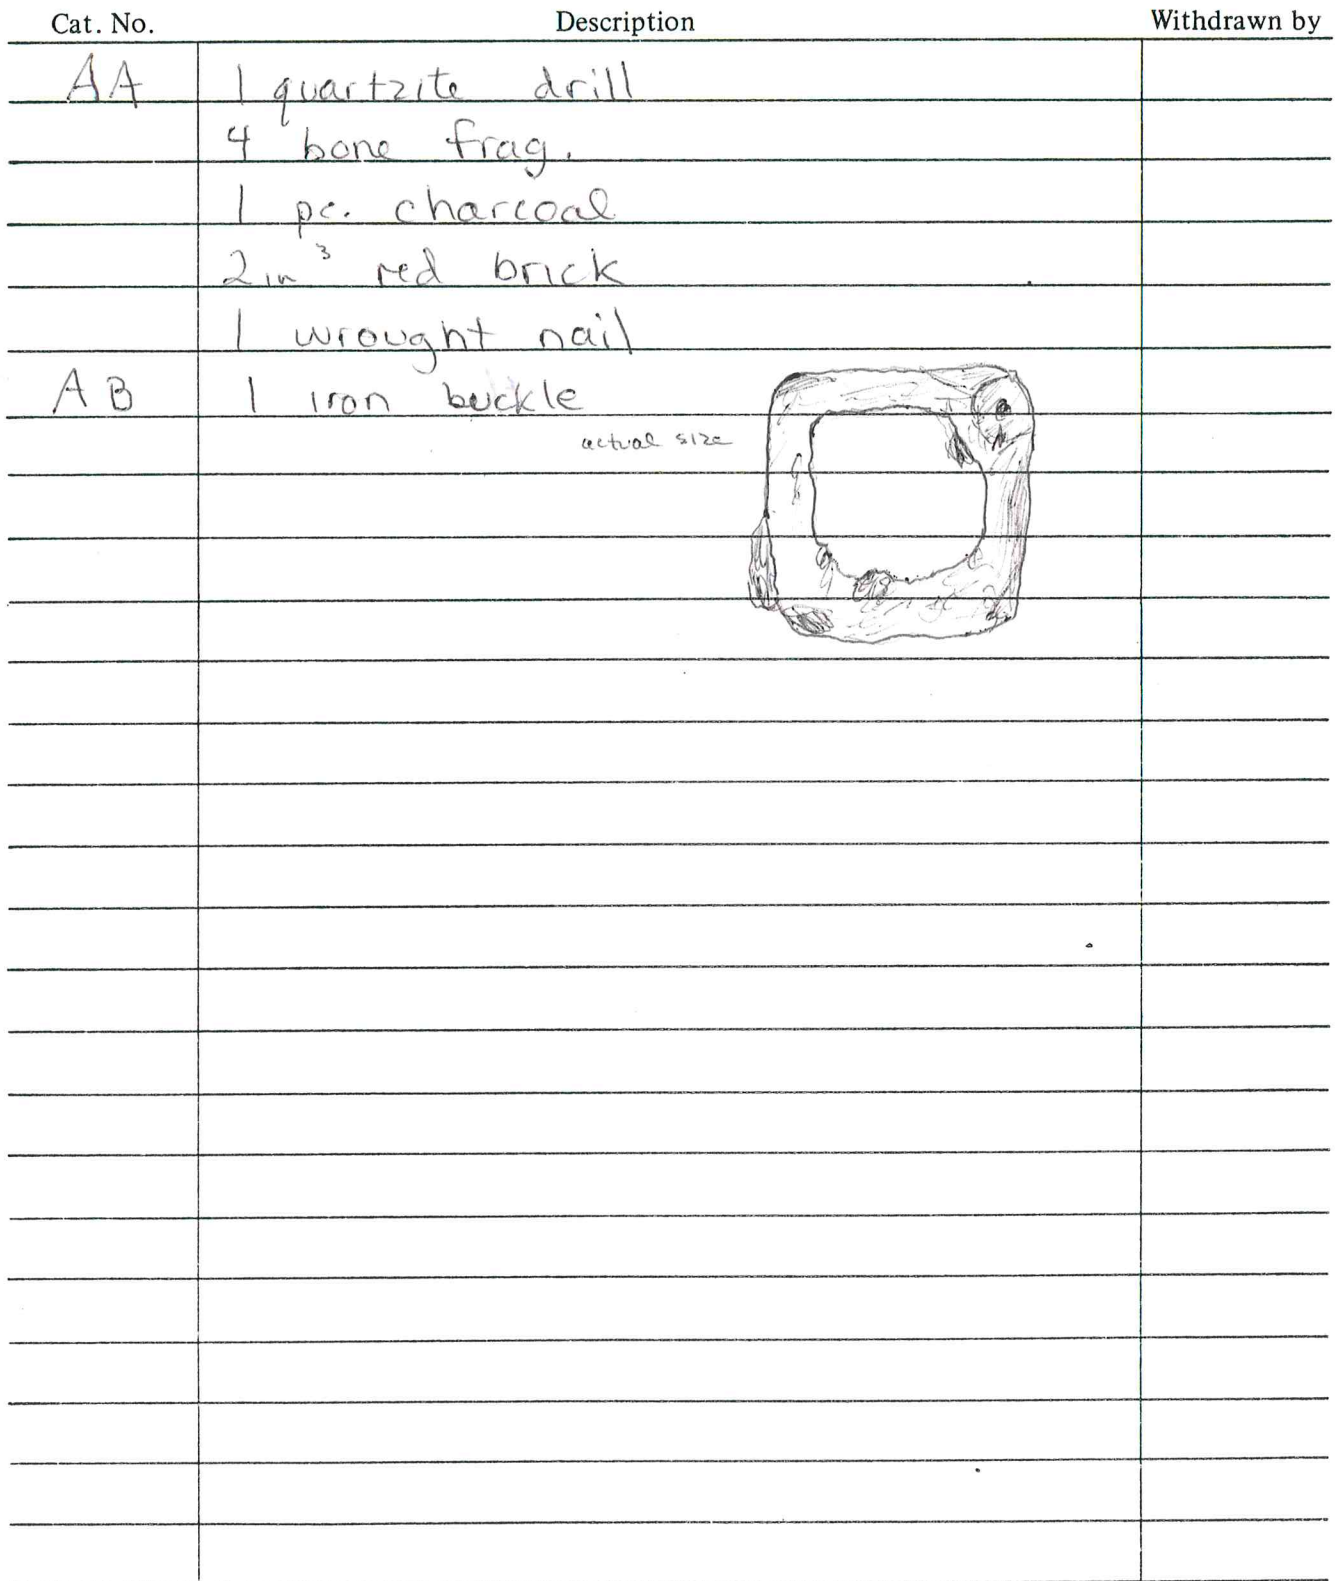 Cat. No. Description Withdrawn by
AA 1 quartzite drill
4 bone frag.
1 pc. charcoal
2 in³ red brick
1 wrought nail
AB 1 iron buckle
actual size